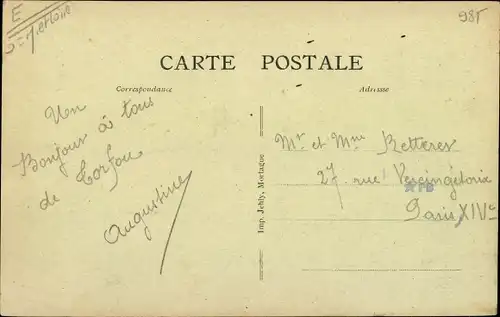 E
981
CARTE POSTALE
Correspondance
Adresse
Un
Bonjour à tous
de Torfou
Augustine
Imp. Jehly, Mortagne
Mr et Mme Retterer
27 rue Vercingétorix
Paris XIVe